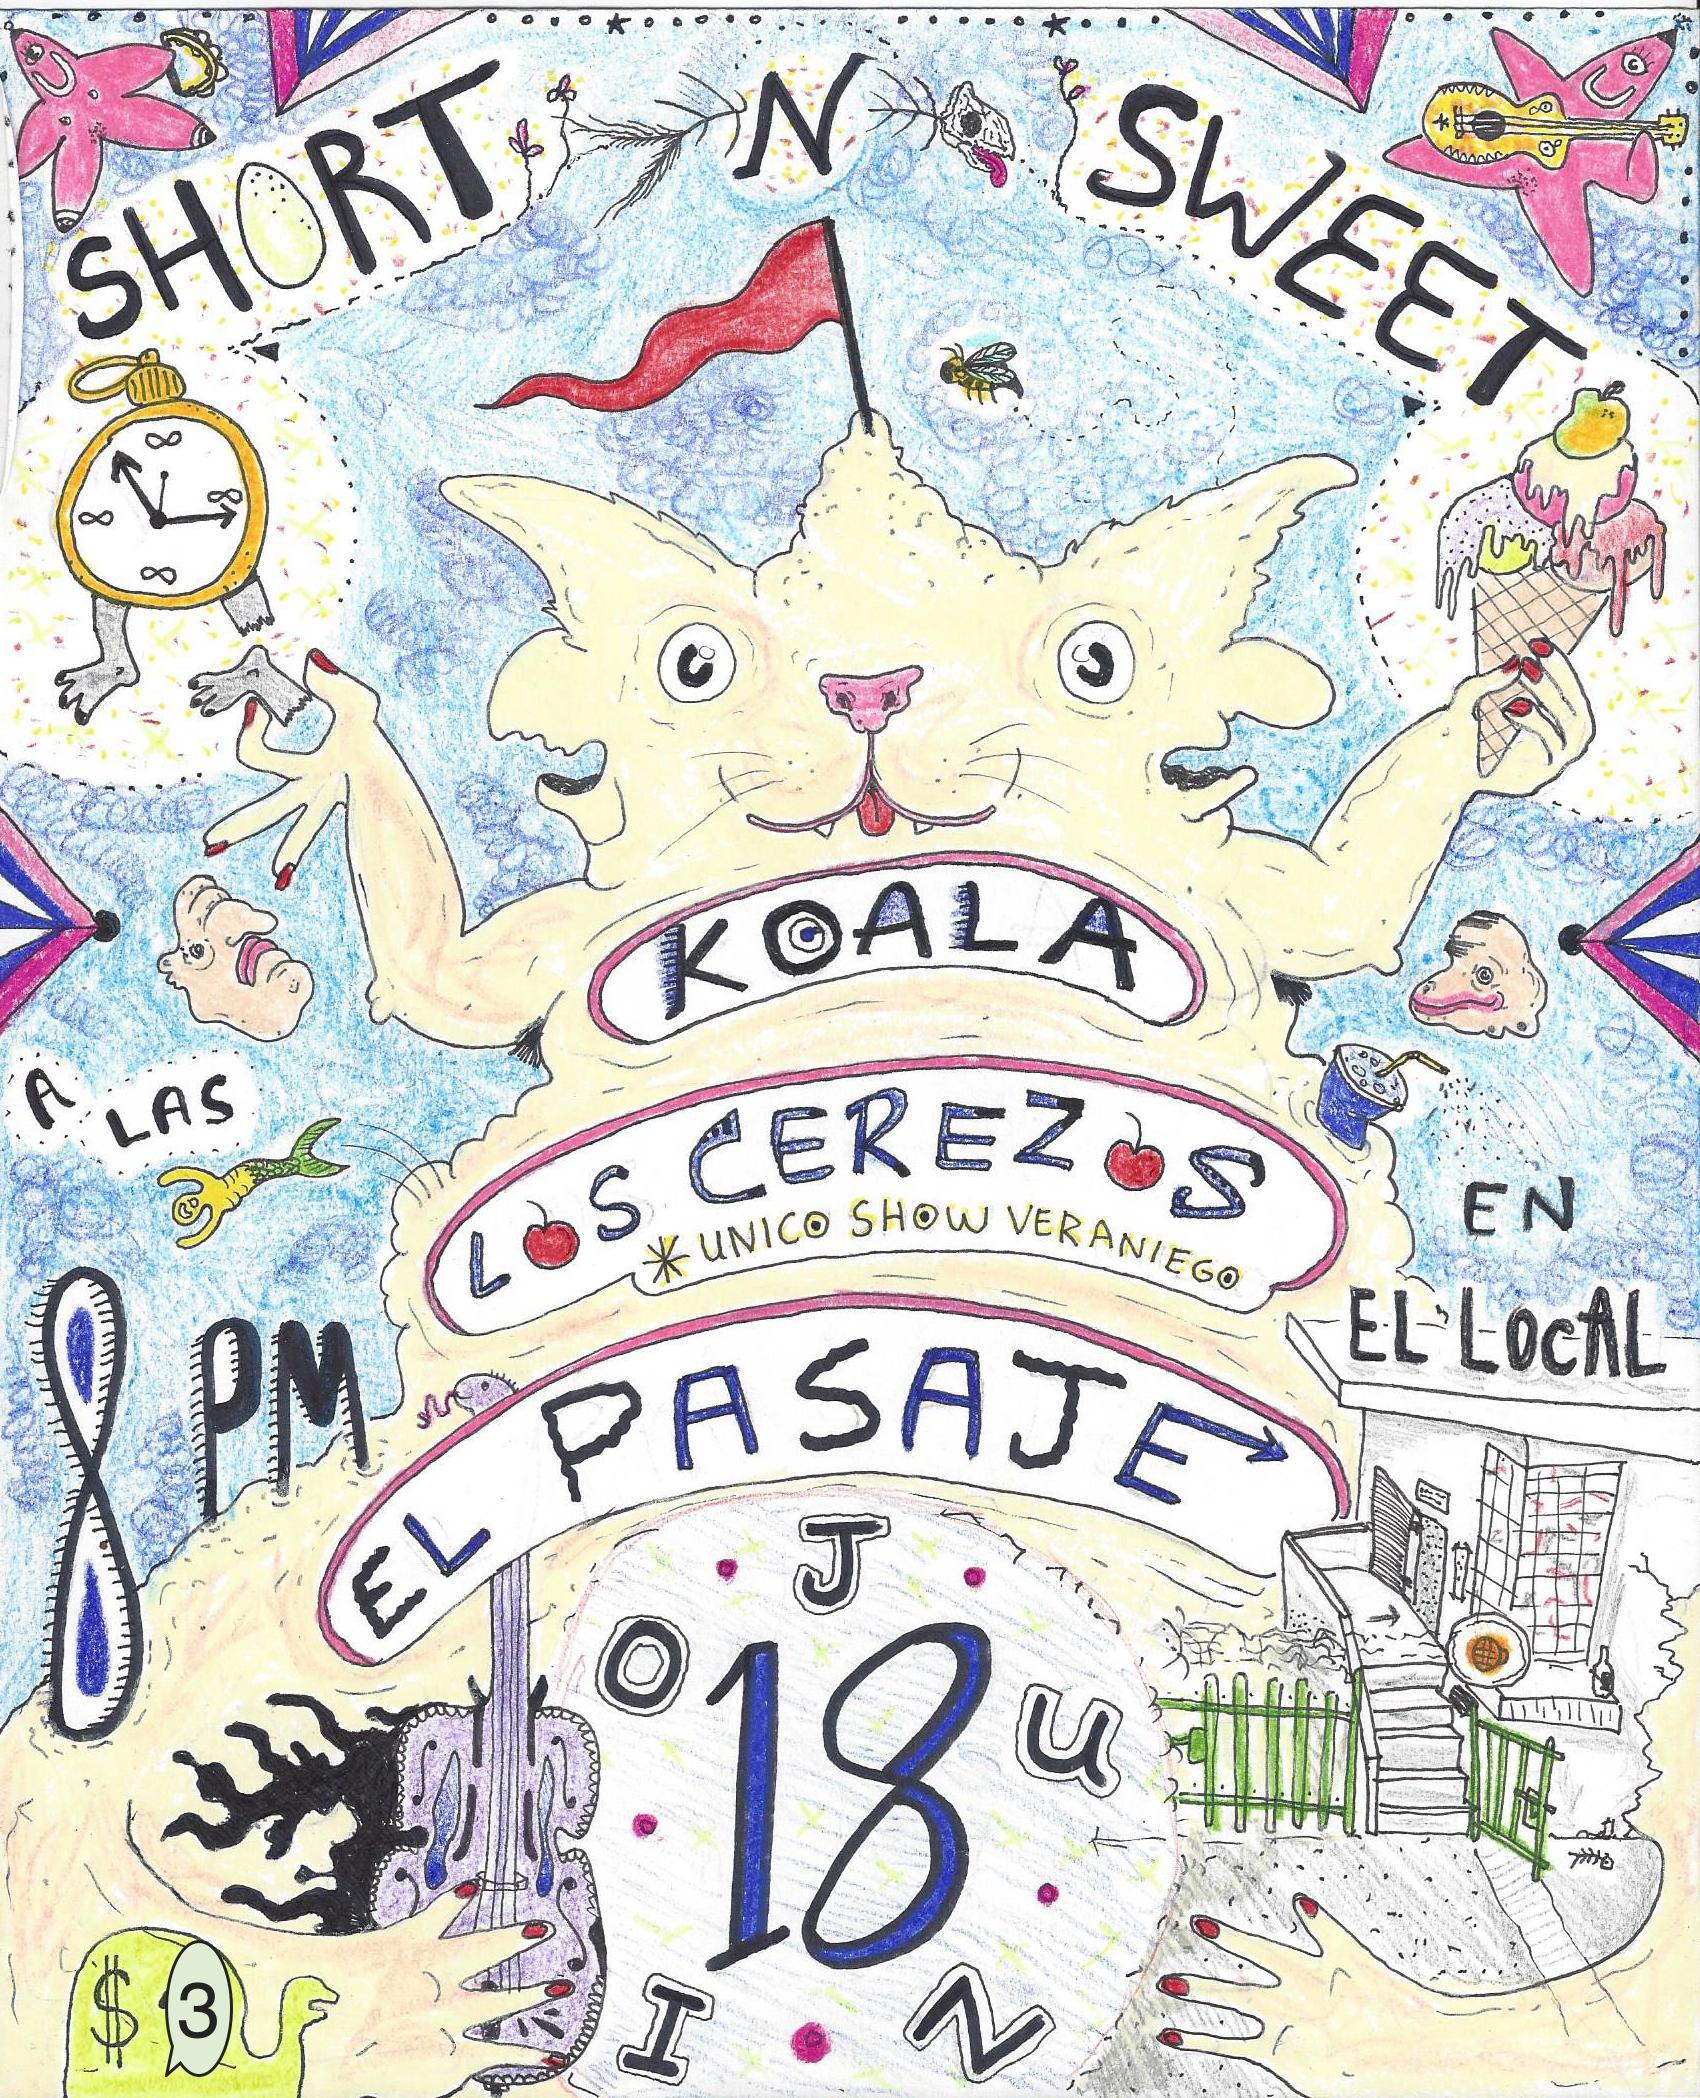 SHORT N SWEET
KOALA
LOS CEREZOS
*UNICO SHOW VERANIEGO
EL PASAJE
A LAS
8 PM
EN
EL LOCAL
18
JUNIO
$3